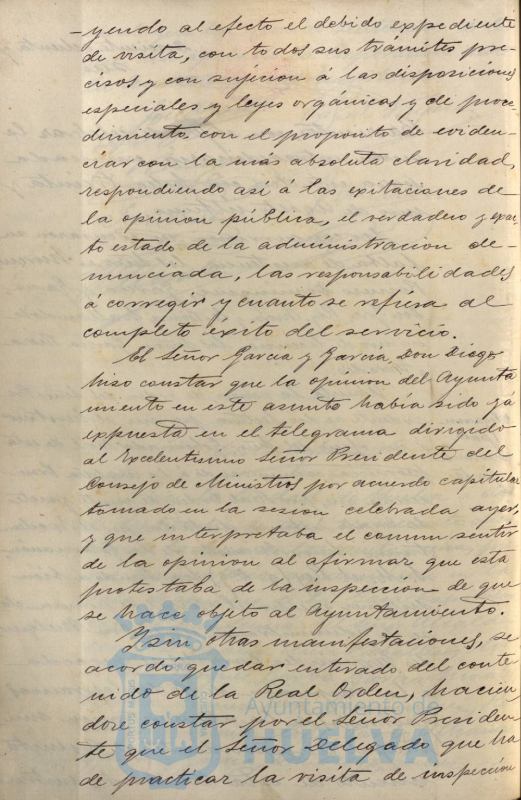 -yendo al efecto el debido expediente
de visita, con todos sus trámites pre-
cisos y con sujecion á las disposiciones
especiales y leyes orgánicas y de proce-
dimiento con el proposito de eviden-
ciar con la mas absoluta claridad,
respondiendo asi á las exitaciones de
la opinion pública, el verdadero y exac-
to estado de la administracion de-
nunciada, las responsabilidades
á corregir y cuanto se refiera al
completo éxito del servicio.
El Señor Garcia y Garcia Don Diego
hiso constar que la opinion del Ayunta
miento en este asunto había sido yá
expuesta en el telegrama dirigido
al Excelentisimo Señor Presidente del
Consejo de Ministros por acuerdo capitular
tomado en la sesion celebrada ayer,
y que interpretaba el comun sentir
de la opinion al afirmar que esta
protestaba de la inspección de que
se hace objeto al Ayuntamiento.
Y sin otras manifestaciones, se
acordó quedar enterado del conte
nido de la Real Orden, hacien
dose constar por el Señor Presiden-
te que el Señor Delegado que ha
de practicar la visita de inspección
Ayuntamiento de
HUELVA